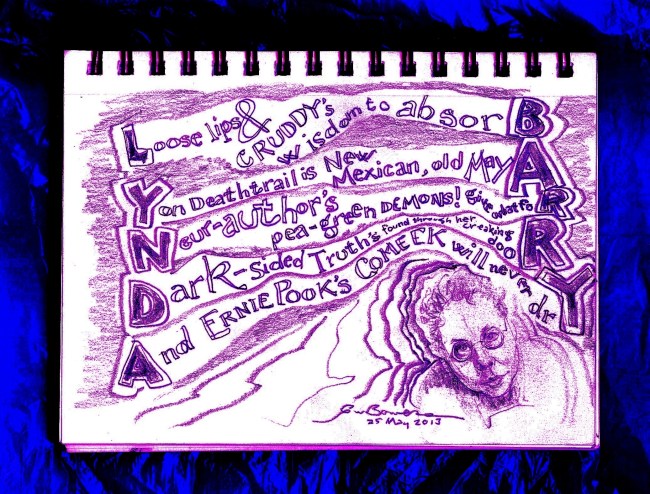 Loose lips & CRUDDY's wisdom to absorB
Yon Deathtrail is New Mexican, old MayA
Neur-author's pea-green DEMONS! give what foR
Dark-sided Truth's found through her creaking dooR
And ERNIE POOK'S COMEEK will never drY
25 May 2013